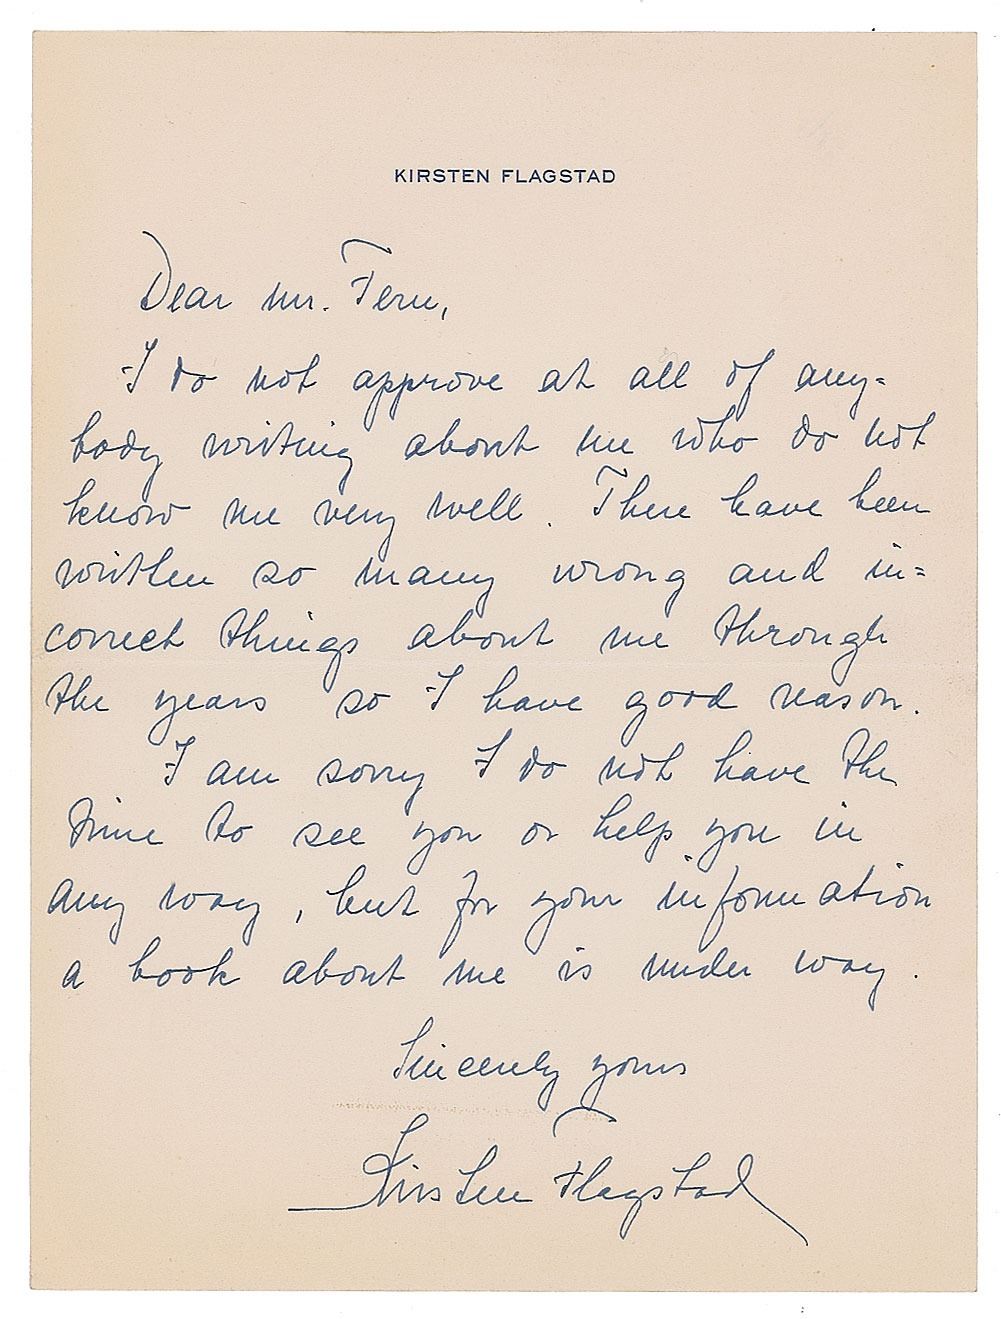 KIRSTEN FLAGSTAD
Dear mr. Fern,
I do not approve at all of any=
body writing about me who do not
know me very well. There have been
written so many wrong and in=
correct things about me through
the years so I have good reason.
I am sorry I do not have the
time to see you or help you in
any way, but for your information
a book about me is under way.
Sincerely yours
Kirsten Flagstad